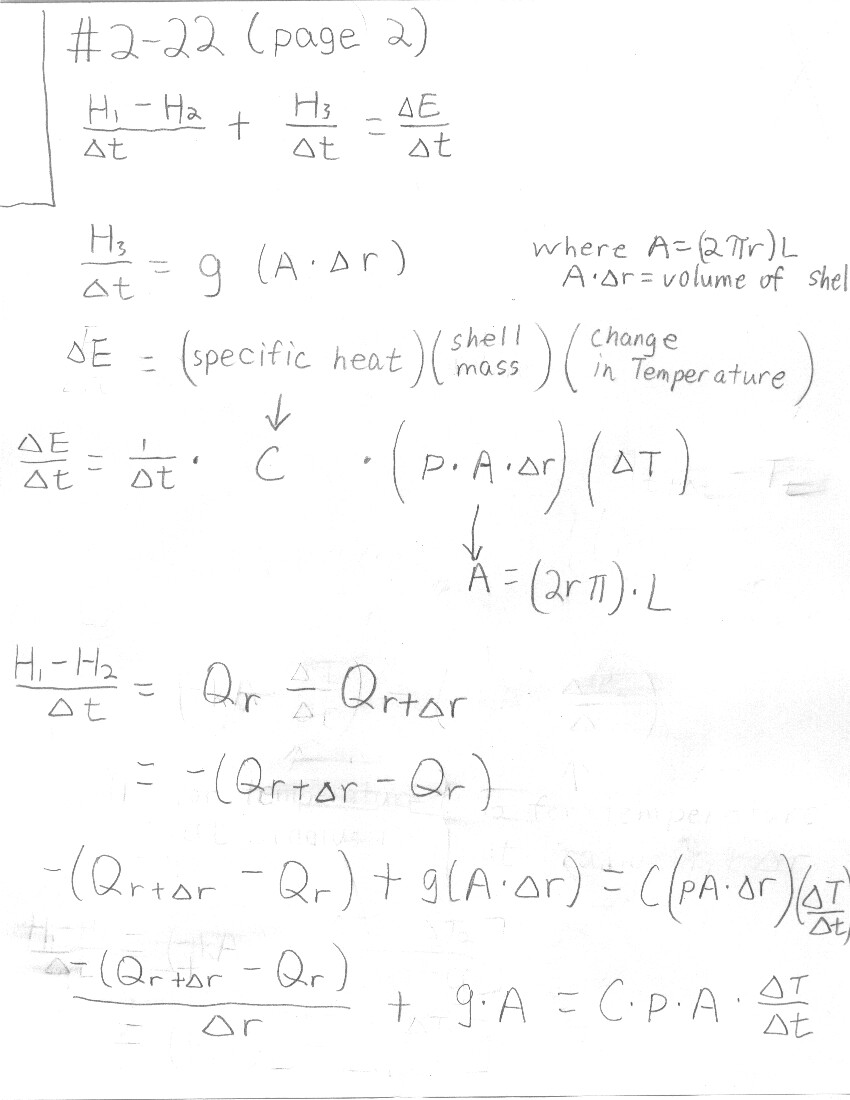 #2-22 (page 2)
H₁ - H₂/Δt + H₃/Δt = ΔE/Δt
H₃/Δt = g (A · Δr)
where A = (2πr)L
A·Δr = volume of shel
ΔE = (specific heat)(shell mass)(change in Temperature)
↓
ΔE/Δt = 1/Δt · C · (p · A · Δr)(ΔT)
↓
A = (2rπ) · L
H₁ - H₂/Δt = Qr - Qr+Δr
= -(Qr+Δr - Qr)
-(Qr+Δr - Qr) + g(A · Δr) = C(pA · Δr)(ΔT/Δt)
-(Qr+Δr - Qr)/Δr + g·A = C·p·A · ΔT/Δt